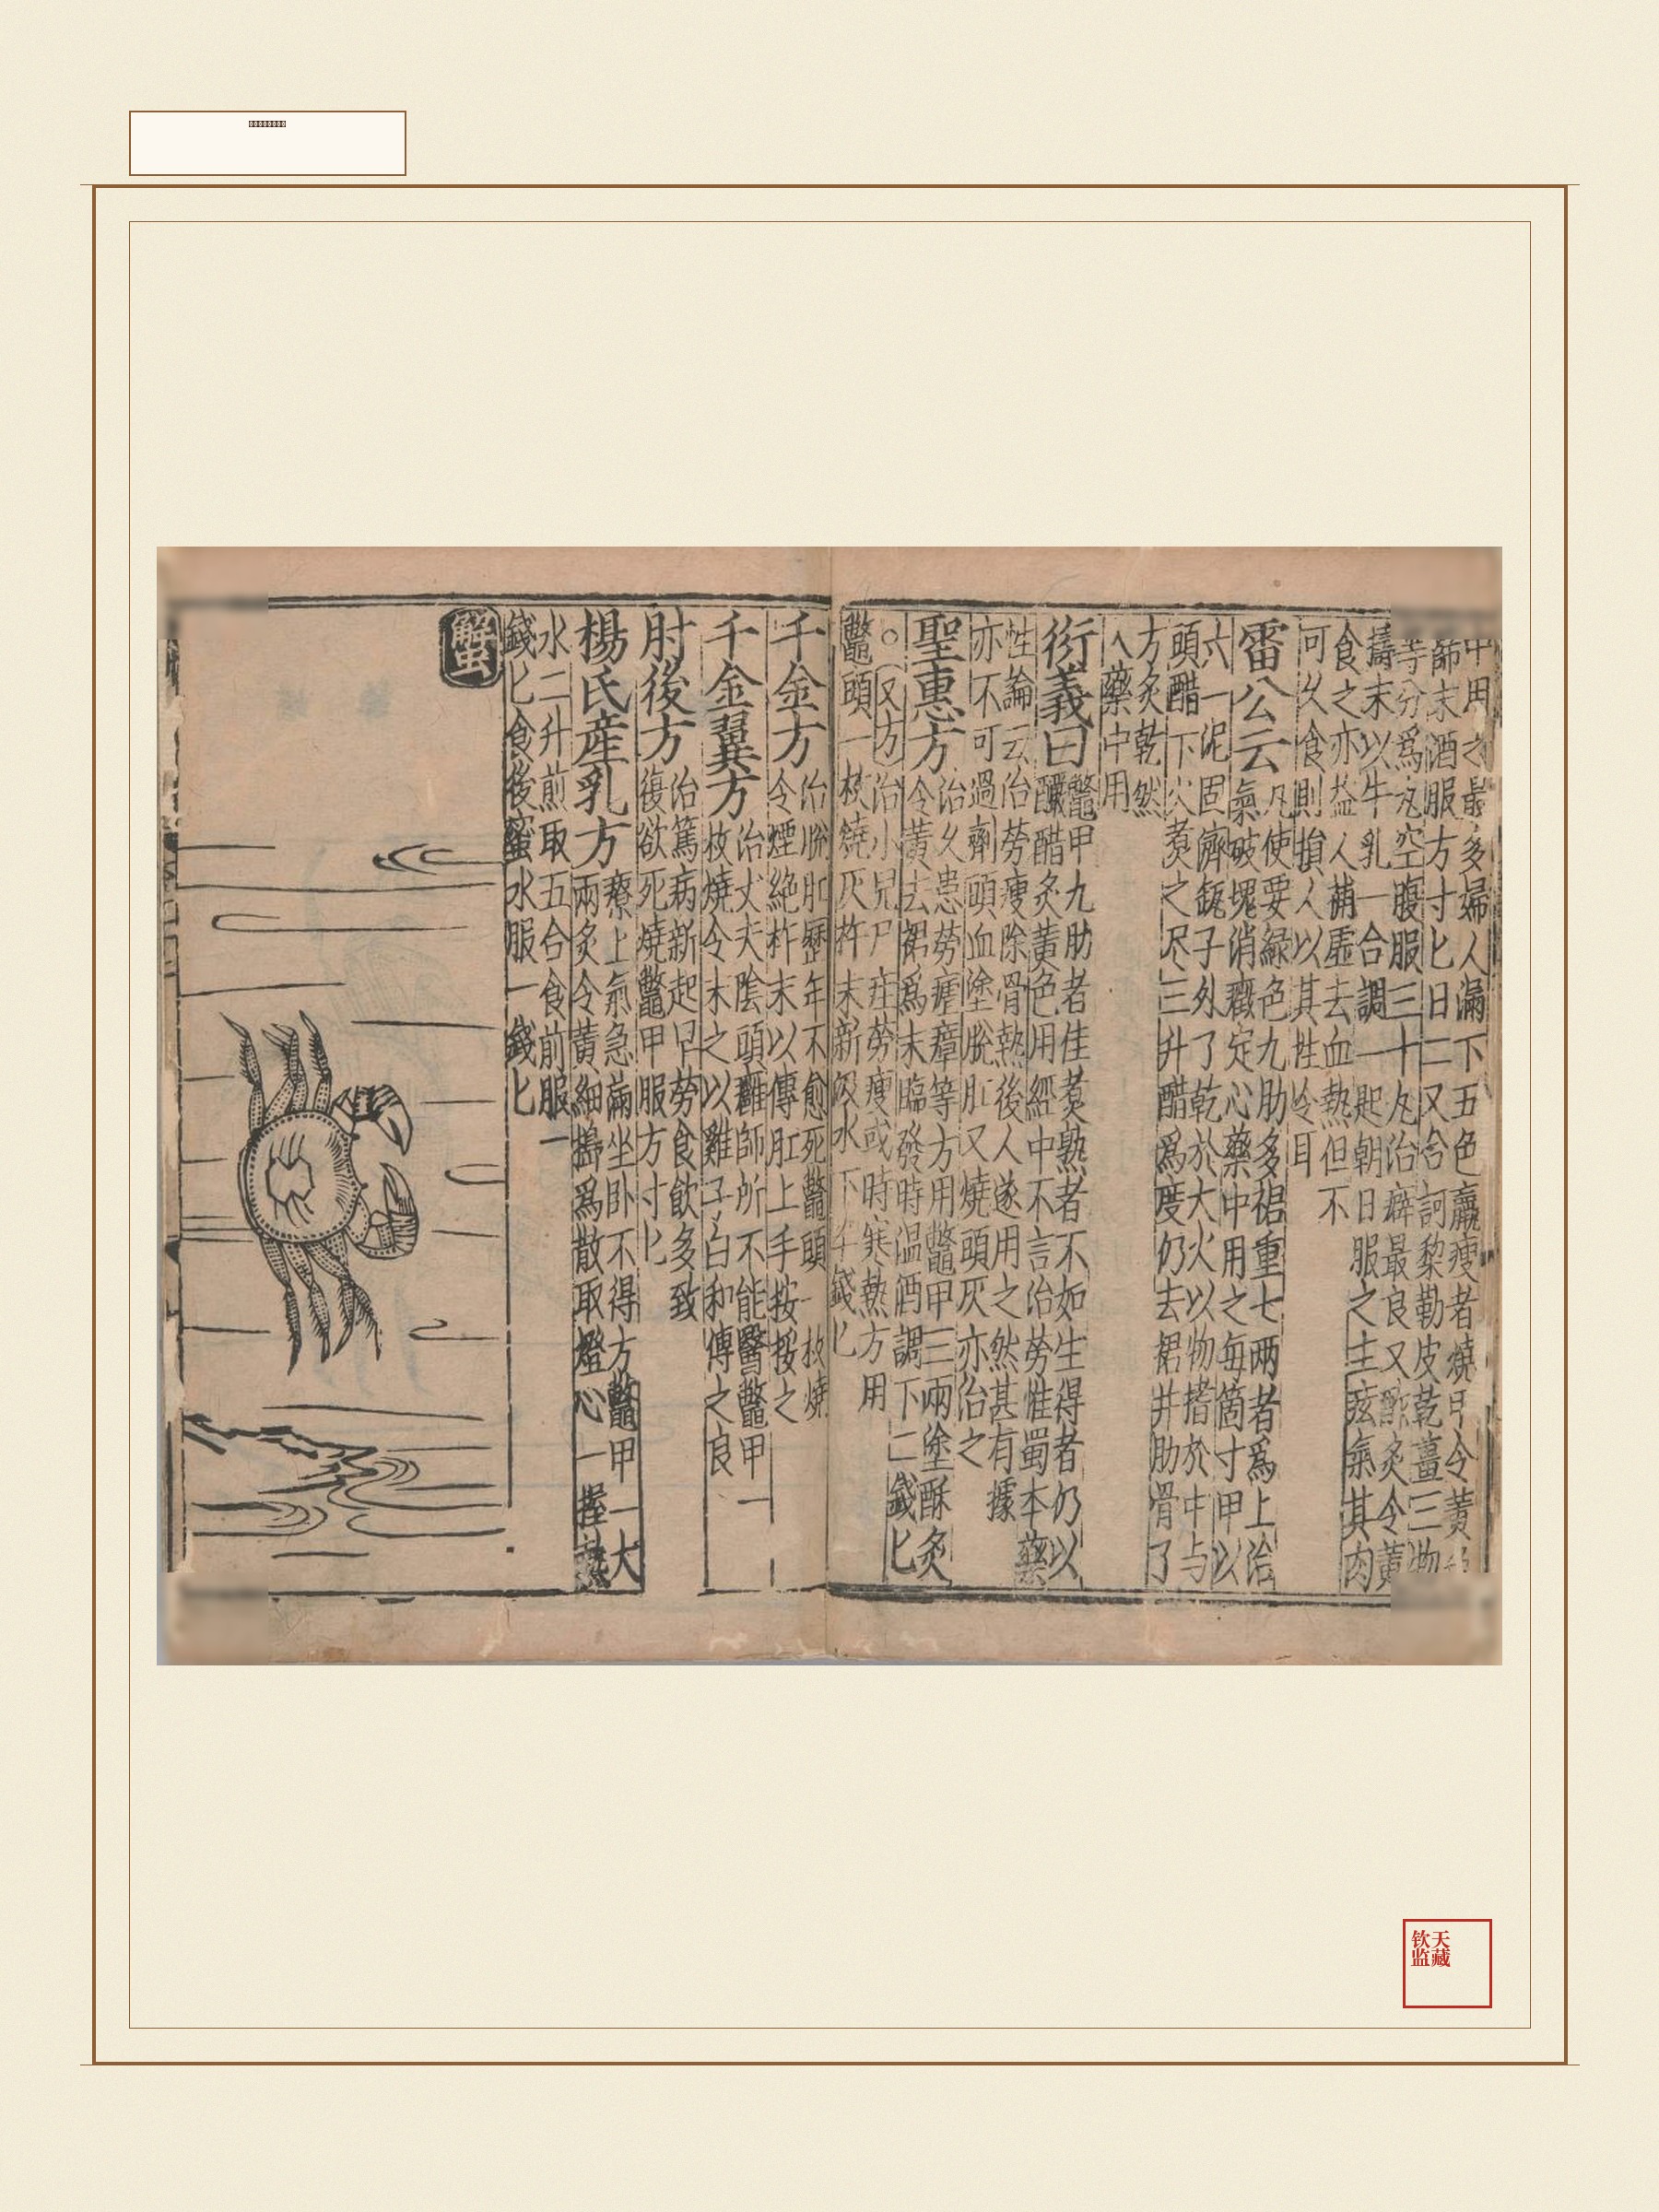 中用之最多婦人漏下五色羸瘦者燒甲令黄
篩末酒服方寸匕日二又合訶黎勒皮乾薑三物
等分爲丸空腹服三十丸治癖最良又醋炙令黄
擣末以牛乳一合調一匙朝日服之主痃氣其肉
食之亦益人補虛去血熱但不
可久食則損人以其性冷耳
雷公云凡使要緑色九肋多裙重七兩者爲上治
氣破塊消癥定心藥中用之每箇寸甲以
六一泥固濟缾子外了乾於大火以物搘於中与
頭醋下火煑之尽三升醋爲度仍去裙并肋骨了
方炙乾然
入藥中用
衍義曰鼈甲九肋者佳煑熟者不如生得者仍以
釅醋炙黄色用經中不言治勞惟蜀本藥
性論云治勞瘦除骨熱後人遂用之然甚有據
亦不可過劑頭血塗脫肛又燒頭灰亦治之
聖惠方治久患勞瘧瘴等方用鼈甲三兩塗酥炙
令黄去裙爲末臨發時温酒調下二錢匕
○又方治小兒尸疰勞瘦或時寒熱方用
鼈頭一枚燒灰杵末新汲水下半錢匕
千金方治脫肛歷年不愈死鼈頭一枚燒
令煙絶杵末以傅肛上手按挼之
千金翼方治丈夫陰頭癰師所不能醫鼈甲一
枚燒令末之以雞子白和傅之良
肘後方治篤病新起早勞食飲多致
復欲死燒鼈甲服方寸匕
楊氏産乳方療上氣急滿坐卧不得方鼈甲一大
兩炙令黄細擣爲散取燈心一握
水二升煎取五合食前服一
錢匕食後蜜水服一錢匕
蟹
天藏
钦监